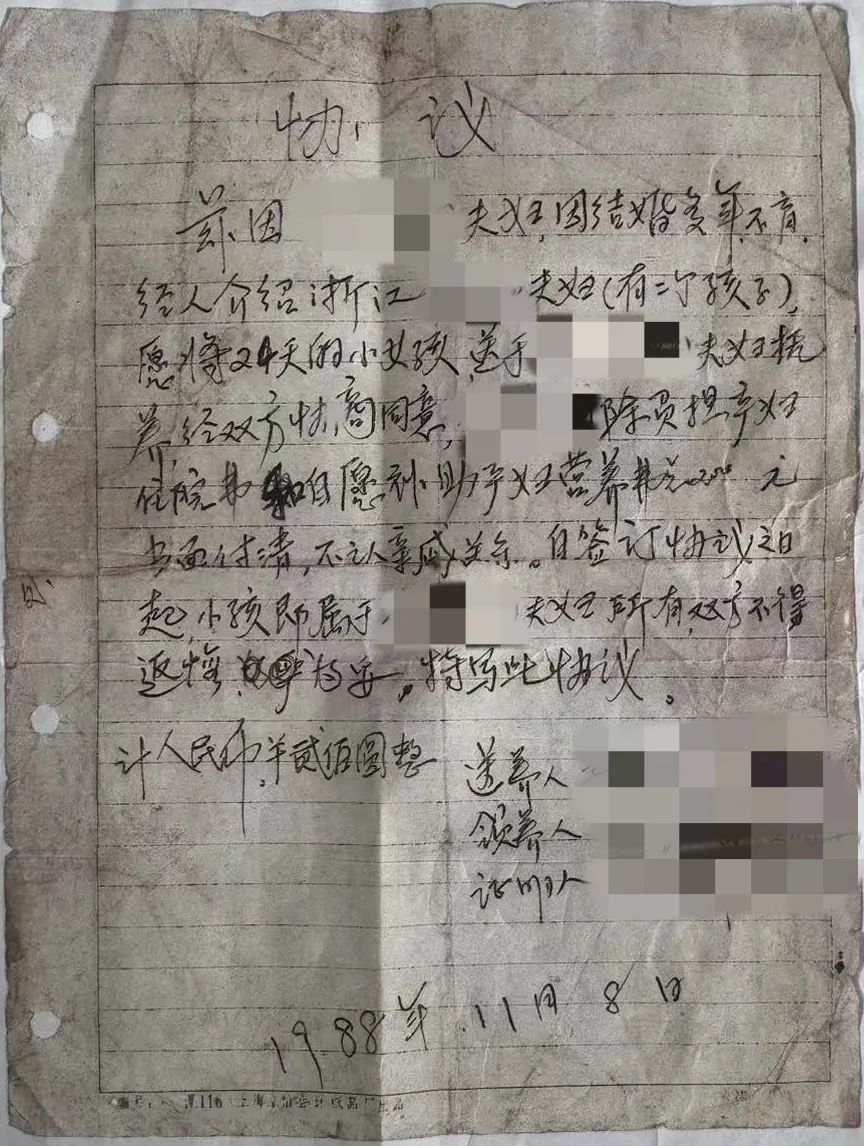 协议
兹因 夫妇,因结婚多年不育,
经人介绍浙江 夫妇(有二个孩子),
愿将24天的小女孩 送于 夫妇抚
养,经双方协商同意, 除负担产妇
住院费和自愿补助产妇营养费 元
当面付清,不认亲戚关系。自签订协议之日
起,小孩即属于 夫妇所有,双方不得
返悔 为妥,特写此协议。
计人民币 贰佰圆整
送养人
领养人
证明人
1988年.11月8日